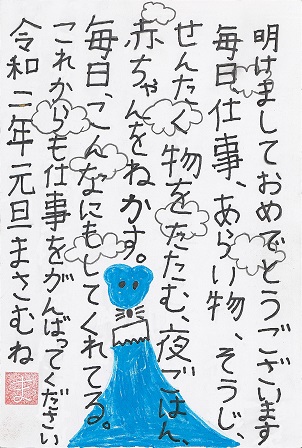 明けましておめでとうございます
毎日、仕事、あらい物、そうじ、
せんたく物をたたむ、夜ごはん、
赤ちゃんをねかす。
毎日、こんなにもしてくれてる。
これからも仕事をがんばってください
令和二年元旦まさむね
ま